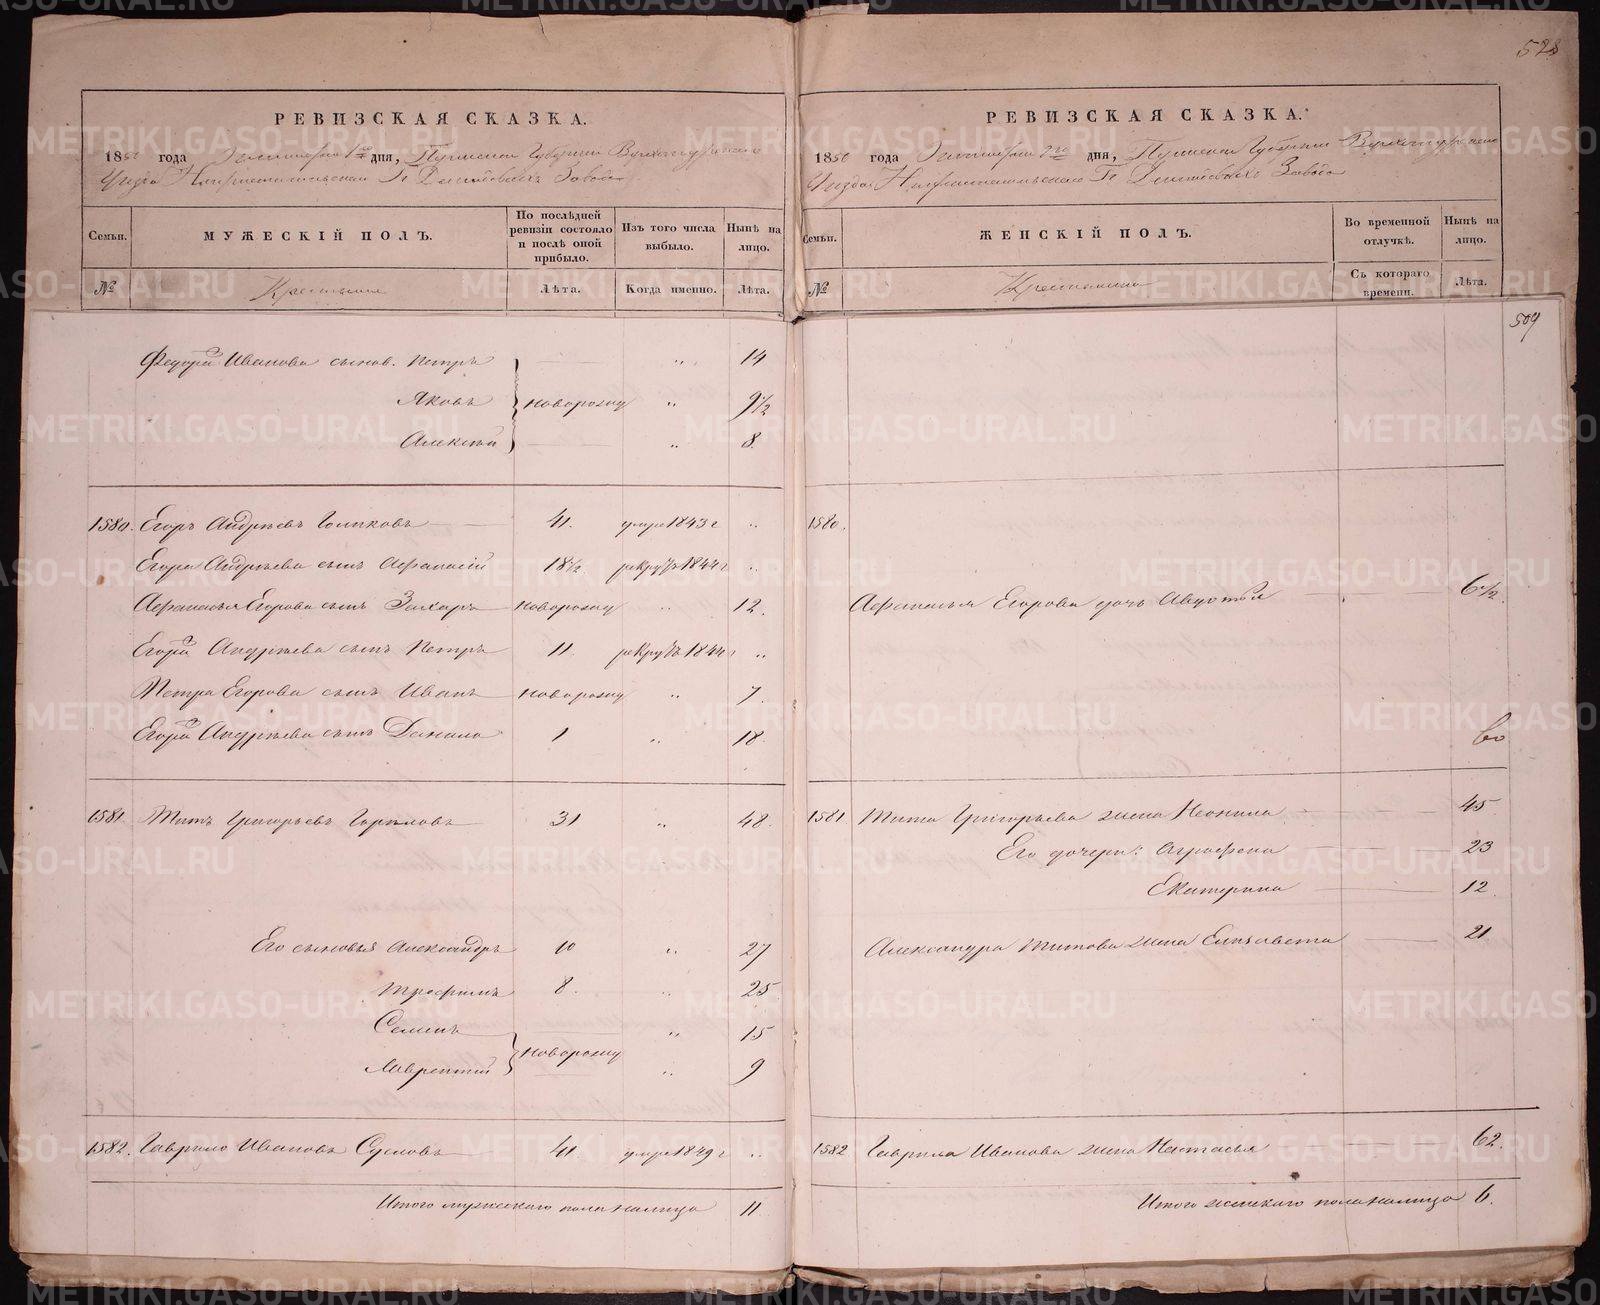 528
РЕВИЗСКАЯ СКАЗКА.
1850 года дня, Пермской Губернии Верхотурскаго
Уезда Нижнетагильскаго Гг Демидовыхъ Завода
Семьи.
МУЖЕСКІЙ ПОЛЪ.
По послѣдней ревизіи состояло и послѣ оной прибыло.
Изъ того числа выбыло.
Нынѣ на лицо.
№
Крестьяне
Лѣта.
Когда именно.
Лѣта.
Федора Иванова сынов. Петръ — „ 14
Яковъ новорожд „ 9 1/2
Алексѣй — „ 8.
1580. Егоръ Андрѣевъ Голиковъ 41. умре 1843 г „
Егора Андрѣева сынъ Афанасій 18 1/2 рекрутъ 1844 г „
Афанасья Егорова сынъ Захаръ новорожд „ 12.
Егора Андрѣева сынъ Петръ 11 рекрутъ 1844 г „
Петра Егорова сынъ Иванъ новорожд „ 7.
Егора Андрѣева сынъ Данило 1 „ 18.
1581 Титъ Григорьевъ 31 „ 48.
Его сыновья Александръ 10 „ 27
Трофимъ 8. „ 25
Семенъ — „ 15
новорожд
Лаврентій „ 9
1582. Гаврило Ивановъ Сусловъ 41 умре 1849 г „
Итого мужескаго пола налицо 11.
РЕВИЗСКАЯ СКАЗКА.
1850 года дня, Пермской Губернии Верхотурскаго
Уезда Нижнетагильскаго Гг Демидовыхъ Завода
Семьи.
ЖЕНСКІЙ ПОЛЪ.
Во временной отлучкѣ.
Нынѣ на лицо.
№
Крестьянки
Съ котораго времени.
Лѣта.
509
1580.
Афанасья Егорова дочь Авдотья 6 1/2.
1581 Тита Григорьева жена Неонила 45
Его дочери: Аграфена 23
Екатерина 12.
Александра Титова жена Елизавета 21
1582 Гаврила Иванова жена Настасья 62.
Итого женскаго пола налицо 6.
METRIKI.GASO-URAL.RU